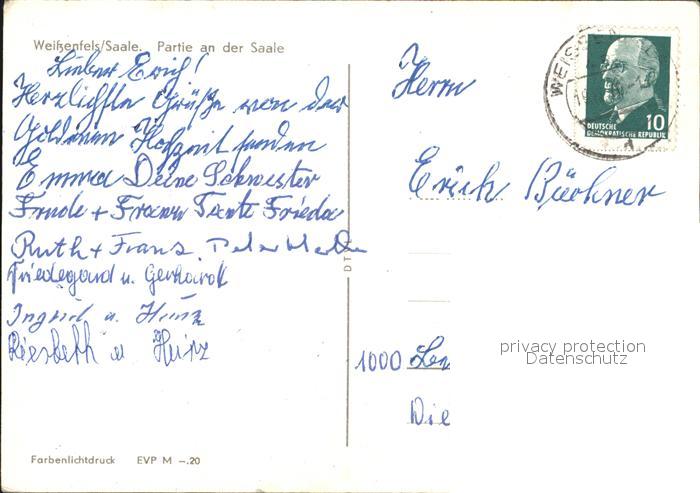 Weißenfels/Saale. Partie an der Saale
Lieber Erich!
Herzlichste Grüße von der
Goldenen Hochzeit senden
Emma Deine Schwester
Frude + Franz Tante Frieda
Ruth + Frans. Peter
Friedegard u. Gerhardt
Ingrid u. Heinz
Liesbeth u Heinz
Farbenlichtdruck EVP M –.20
DT
Herrn
Erich Büchner
1000
Die
WEISSEN
DEUTSCHE
DEMOKRATISCHE REPUBLIK
10
privacy protection
Datenschutz